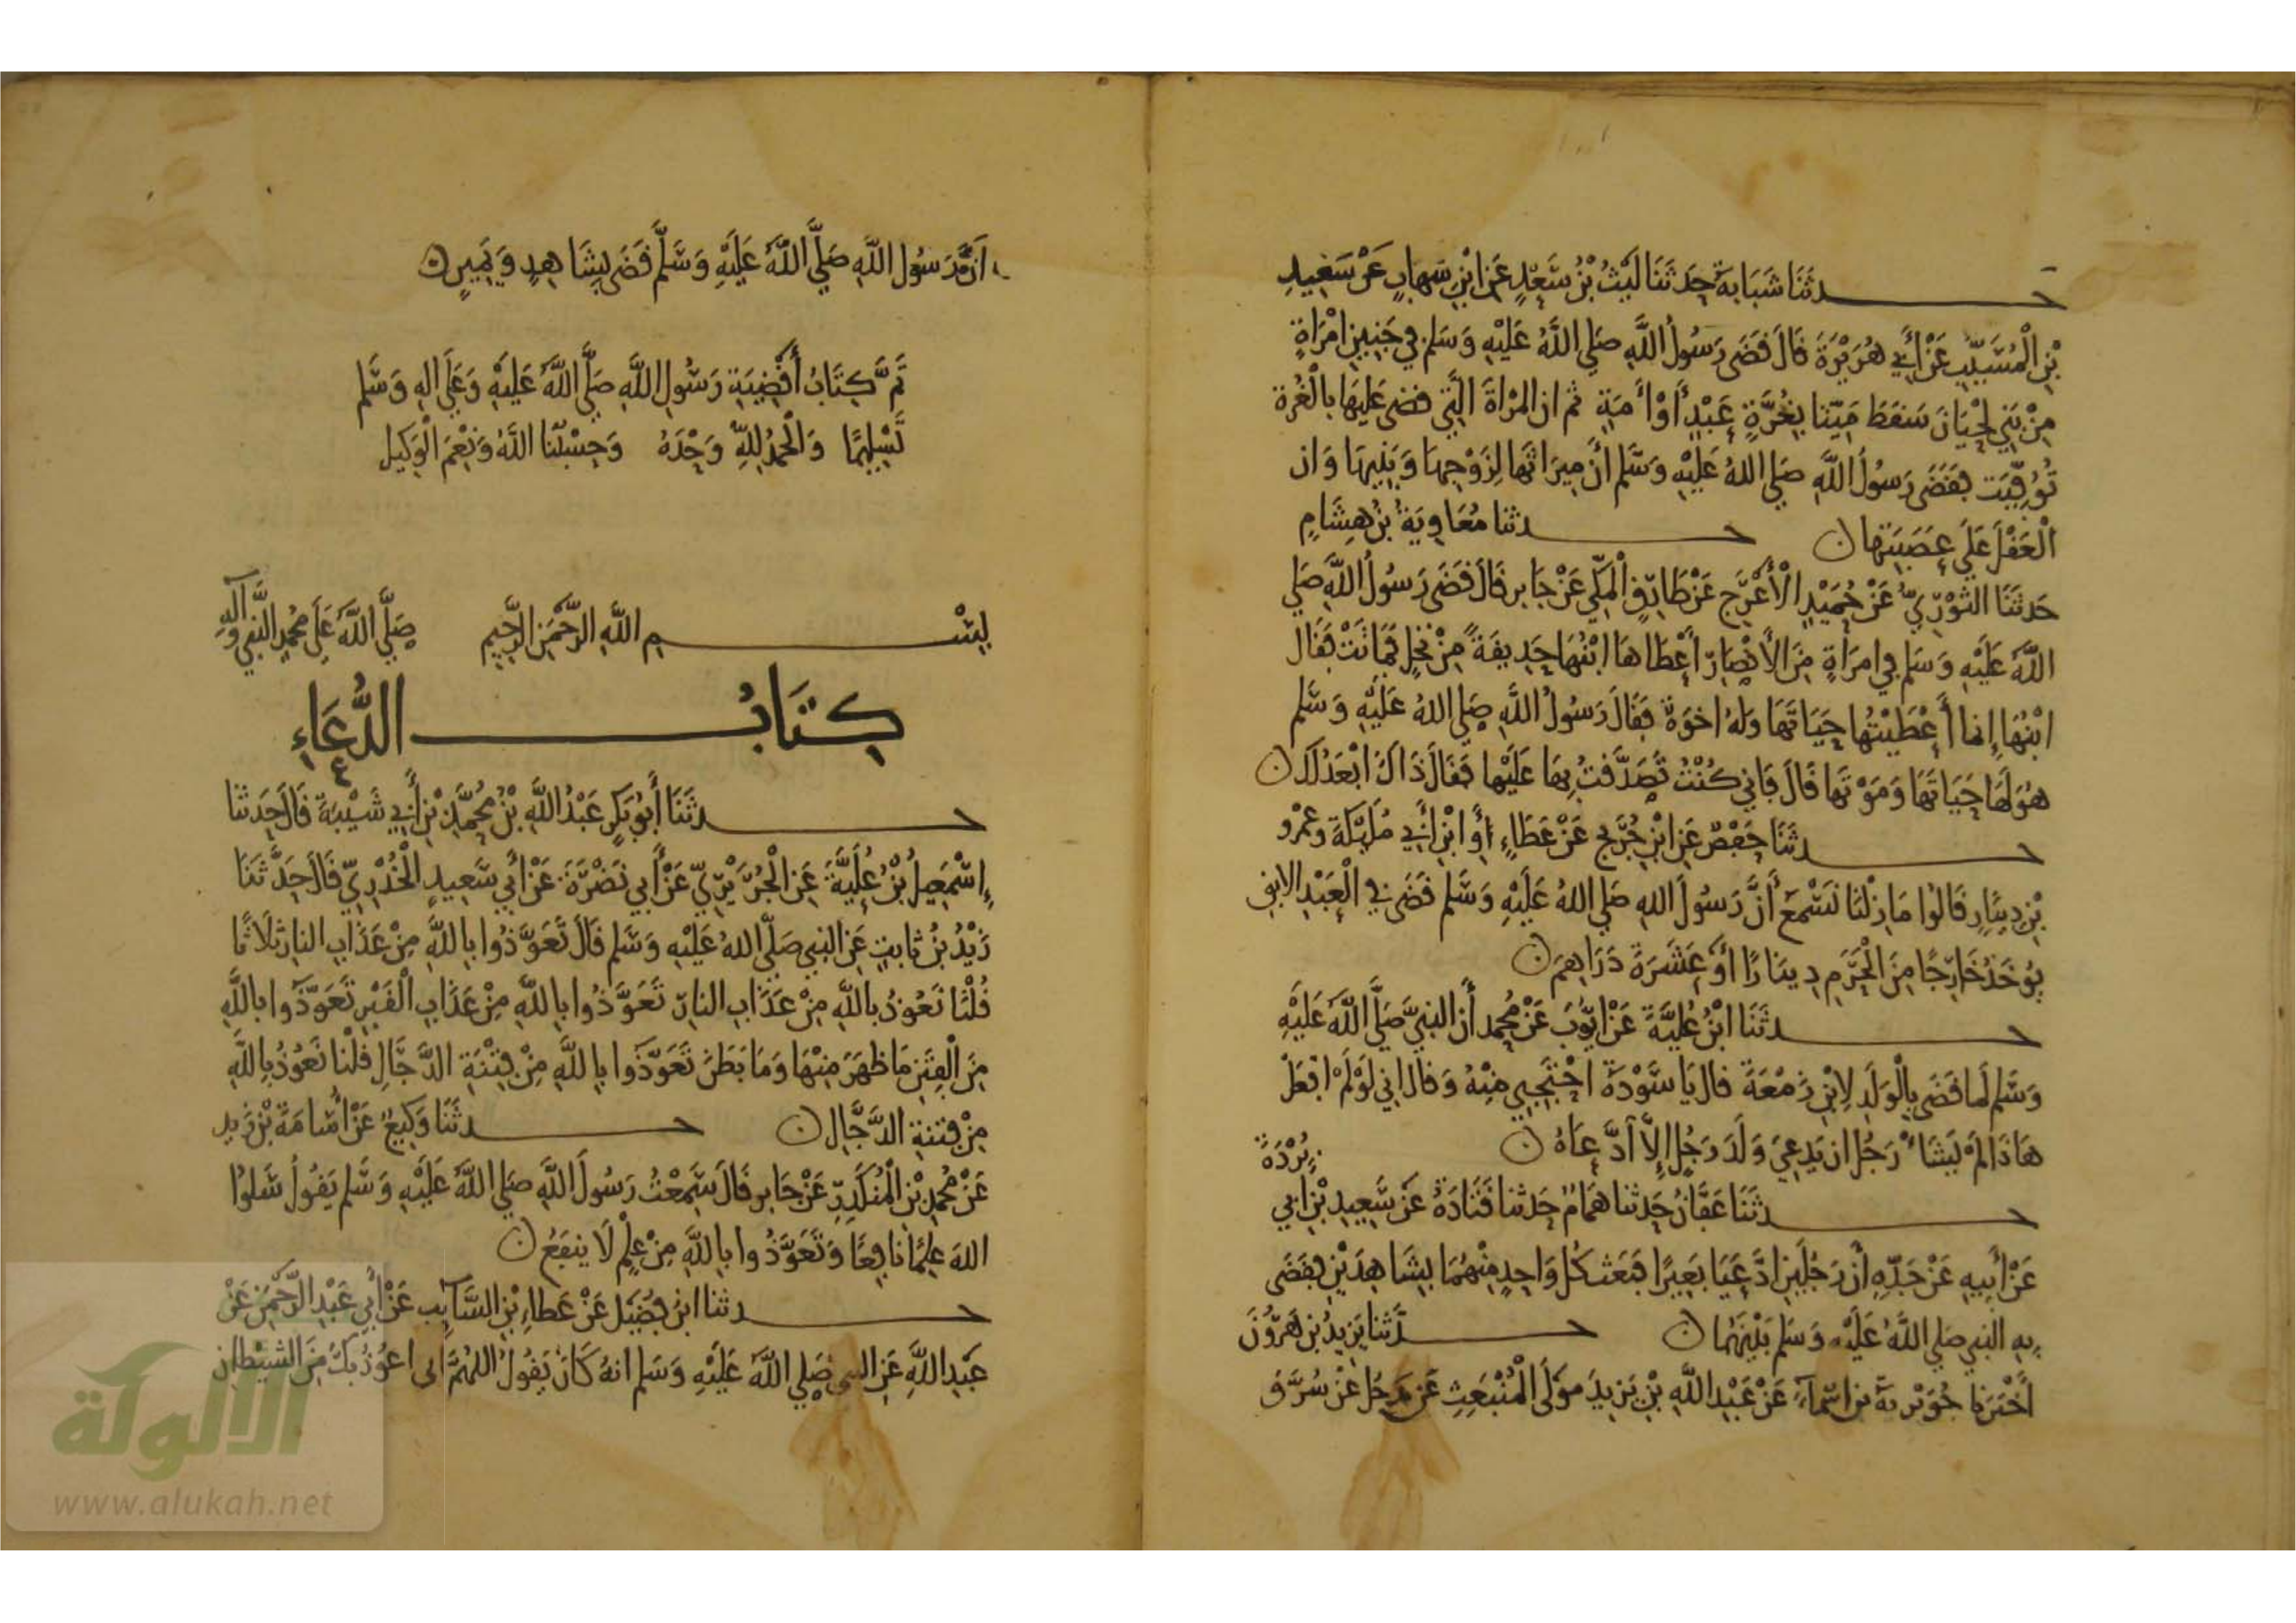 حدثنا شَبَابَةُ حَدثَنَا لَيْثُ بْنُ سَعْدٍ عَنِ ابْنِ شهابٍ عَنْ سَعِيدِ
بْنِ الْمُسَيِّبِ عَنْ أَبِي هُرَيْرَةَ قَالَ قَضَى رَسُولُ اللَّهِ صَلي اللَّهُ عَلَيْهِ وَسَلم في جَنِينِ امْرَأةٍ
مِنْ بَنِي لِحْيَانَ سَقَطَ مَيِّتا بِغُرَّةٍ عَبْدٍ أَوْ أَمَةٍ ثم ان المرْاةَ الَّتِي قضى عَلَيهَا بِالْغُرة
تُوُفِّيَت فَقَضَى رَسُولُ اللَّهِ صَلي اللهُ عَلَيْهِ وَسَّلم أنَّ مِيرَاثَها لِزَوْجِهَا وَبَنِيهَا وَان
الْعَقْلَ عَلَى عَصَبَتِها ن حدثنا مُعَاوِيَةُ بْنُ هِشَامٍ
حَدثَنَا الثَوْرِيُّ عَنْ حُمَيْدٍ الْأَعْرَجِ عَنْ طَارِقٍ الْمَكِّي عَنْ جَابر قَالَ قَضَى رَسُولُ اللَّهِ صَلي
اللَّهُ عَلَيْهِ وَسَلم في امرَأةٍ مِنَ الأَنْصَارِ أَعْطَاهَا ابْنُهَا حَدِيقَةً مِنْ نَخْلٍ فَمَاتَتْ فَقَال
ابْنُهَا إِنما أَعْطَيْتُها حَيَاتَهَا وَلهُ اخوَة فَقَالَ رَسُولُ اللَّهِ صَلي اللهُ عَلَيْهِ وَسَّلم
هُوَ لَهَا حَيَاتَهَا وَمَوْتَها قَالَ فَاني كُنْتُ تَصَدَّقْتُ بِهَا عَلَيْها فَقَالَ ذَاكَ ابْعَدُ لَكَ ن
حدثَنَا حَفْصٌ عَنِ ابْنِ جُرَيْج عَنْ عَطَاءٍ أَوِ ابْنِ أَبِي مُلَيْكَةَ وعَمْرو
بْنِ دِينَارٍ قَالُوا مَا زِلْنَا نَسْمَعُ أَنَّ رَسُولَ اللهِ صَلي اللهُ عَلَيْهِ وَسَّلم قَضَى في الْعَبْدِ الابق
يُوخَذُ خَارِجًا مِنَ الْحَرَمِ دِينَارًا أَوْ عَشَرَةَ دَرَاهِمَ ن
حدثَنَا ابْنُ عُلَيَّةَ عَنْ ايُّوبَ عَنْ مُحمد أَن النبيَّ صَلَّي اللَّهُ عَلَيْهِ
وَسَّلم لَما قَضَى بِالْوَلَدِ لاِبْنِ زَمْعَةَ قال يَا سَوْدَةَ احْتَجِبِي مِنْهُ وَقال اني لَوْ لَمْ افْعَلْ
هَاذَا لَمْ يَشَاْ رَجُل ان يَدعِيَ وَلَدَ رَجُلٍ إِلاَّ ادَّعَاهُ ن
بُرْدَةَ
حدثَنَا عَفَّانُ حَدثنا هَمَّامٌ حَدثنا قَتَادَةُ عَنْ سَّعِيدِ بْنِ ابي
عَنْ أَبِيهِ عَنْ جَدِّهِ أَن رَجُلَيْنِ ادَّعَيَا بَعِيرًا فَبَعَثَ كُل وَاحِدٍ مِنْهُمَا بِشَاهِدَيْنِ فَقَضَى
بِهِ النبي صَلي اللَّهُ عَلَيْهِ وَسَلم بَيْنَهُمَا ن حدثنا يَزِيدُ بن هَرُونَ
أَخْبَرَنا جُوَيْرِيَةُ بن اسْمَاءَ عَنْ عَبْدِ اللَّهِ بْنِ يَزِيدَ مَوْلَى الْمُنْبَعِثِ عَن رَجُل عَنْ سُرَّق
انَّ رَسُول اللَّهِ صَلَّي اللَّهُ عَلَيْهِ وَسَّلَّم قَضَى بِشَاهِدٍ وَيَمِينٍ ن
تَمَّ كِتَابُ أَقْضِيَةِ رَسُولِ اللَّهِ صَلَّي اللَّهُ عَلَيْهِ وَعَلَى الِهِ وَسَّلم
تَسْلِيمًا وَالْحَمْدُ لِلَّهِ وَحْدَهُ وَحَسْبُنَا اللَّهُ وَنِعْمَ الْوَكِيل
بِسْمِ اللَّهِ الرَّحْمَنِ الرَّحِيمِ صَلَّي اللَّهُ عَلَى مُحمدٍ النبي وَآلِهِ
كِتَابُ الدُّعَاءِ
حدثَنَا أَبُو بَكرٍ عَبْدُ اللَّهِ بْنُ مُحَمَّدِ بْنِ أَبِي شَيْبَةَ قَالَ حَدثنا
إِسْمَعِيلُ بْنُ عُلَيَّةَ عَنِ الْجُرَيْرِيِّ عَنْ أَبي نَضْرَةَ عَنْ أَبي سَعِيدٍ الْخُدْرِيّ قَالَ حَدَّثَنَا
زَيْدُ بْنُ ثابتٍ عَنِ النبي صَلَّي اللهُ عَلَيْهِ وَسَلم قَالَ تَعَوَّذُوا بِاللَّهِ مِنْ عَذَابِ النارِ ثَلَاثًا
قُلْنَا نَعُوذُ بِاللَّهِ مِنْ عَذَابِ النارِ تَعَوَّذُوا بِاللَّهِ مِنْ عَذَابِ الْقَبْرِ تَعَوَّذُوا بِاللَّهِ
مِنَ الْفِتَنِ مَا ظَهَرَ مِنْهَا وَمَا بَطَنَ تَعَوَّذُوا بِاللَّهِ مِنْ فِتْنَةِ الدَّجَّالِ قُلْنا نَعُوذُ بِاللَّهِ
مِنْ فِتنةِ الدَّجَّالِ ن حدثَنَا وَكِيعٌ عَنْ أُسَامَةَ بْنِ زَيد
عَنْ مُحمدِ بْنِ الْمُنْكَدِرِ عَنْ جَابر قَالَ سَّمِعْتُ رَسُولَ اللَّهِ صَلي اللَّهُ عَلَيْهِ وَسَّلم يَقُولُ سَلُوا
اللهَ عِلْمًا نَافِعًا وَتَعَوَّذُوا بِاللَّهِ مِنْ عِلْمٍ لَا ينفَعُ ن
حدثنا ابْنُ فُضَيْلٍ عَنْ عَطاءِ بْنِ السَّائِبِ عَنْ أَبي عَبْدِ الرَّحْمَنِ عَنْ
عَبْدِ اللَّهِ عَنِ النبي صَلي اللَّهُ عَلَيْهِ وَسَلم انهُ كَانَ يَقُولُ اللهُمَّ اني اعُوذُ بكَ مِنَ الشيْطانِ
الألوكة
www.alukah.net